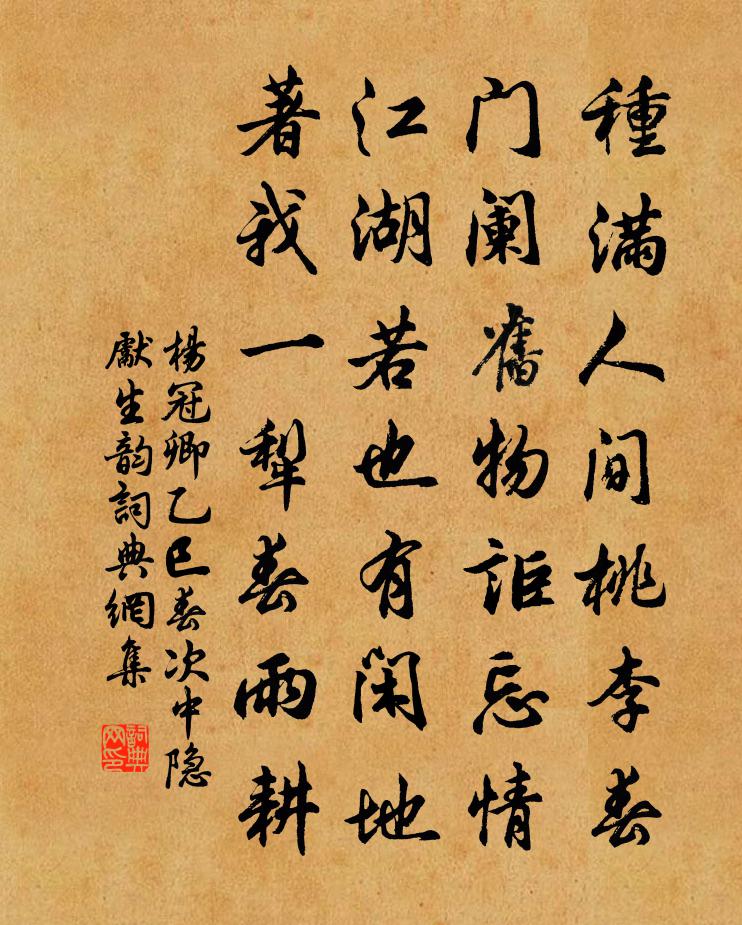 種滿人间桃李春
门阑舊物詎忘情
江湖若也有闲地
著我一犁春雨耕
楊冠卿乙巳春次中隐
獻生韵詞典網集
詞典
网印